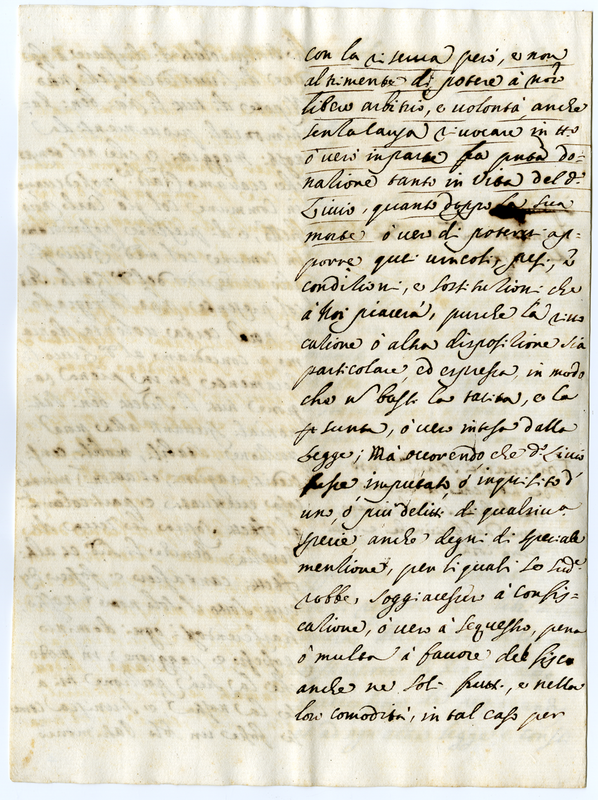 con la riserva però, e non
altrimente di potere à nõro
libero arbitrio, e volontà, anche
senza causa rivocare in tto
ò vero in parte la pnte do=
natione tanto in vita del d.
Livio, quanto doppo la sua
morte ò vero di poterci ap=
porre quei vincoli, pesi,
conditioni, e sostitutioni che
à Noi piacerà, purche la rivo
catione ò altra dispositione sia
particolare ed espressa, in modo
che nō basti la tacita, e la
presunta, ò vero intesa dalla
legge; Mà occorrendo che d. Livio
fosse imputato, ò inquisito d'
uno, ò più delitti di qualsivo.
specie, anche degni di speciale
mentione, per li quali le sud.
robbe, soggiacessero à confis=
catione, ò vero à sequestro, pena
ò multa à favore del fisco
anche ne soli frutti, e nella
loro comodità, in tal caso per